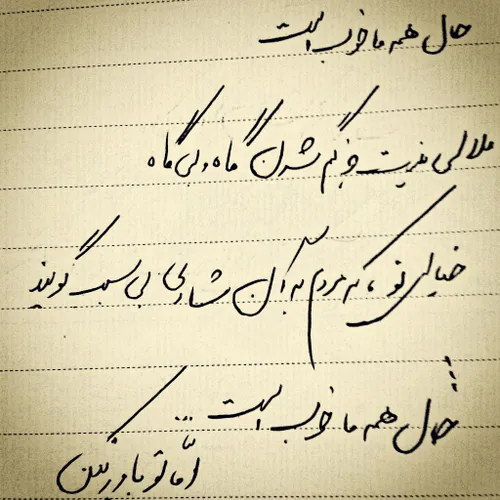 حال همه ما خوب است
ملالی نیست جز گم شدن گاه و بی گاه
خیالی تو، که مردم به آن شادی بی سبب گویند
حال همه ما خوب است...
امّا تو باور نکن